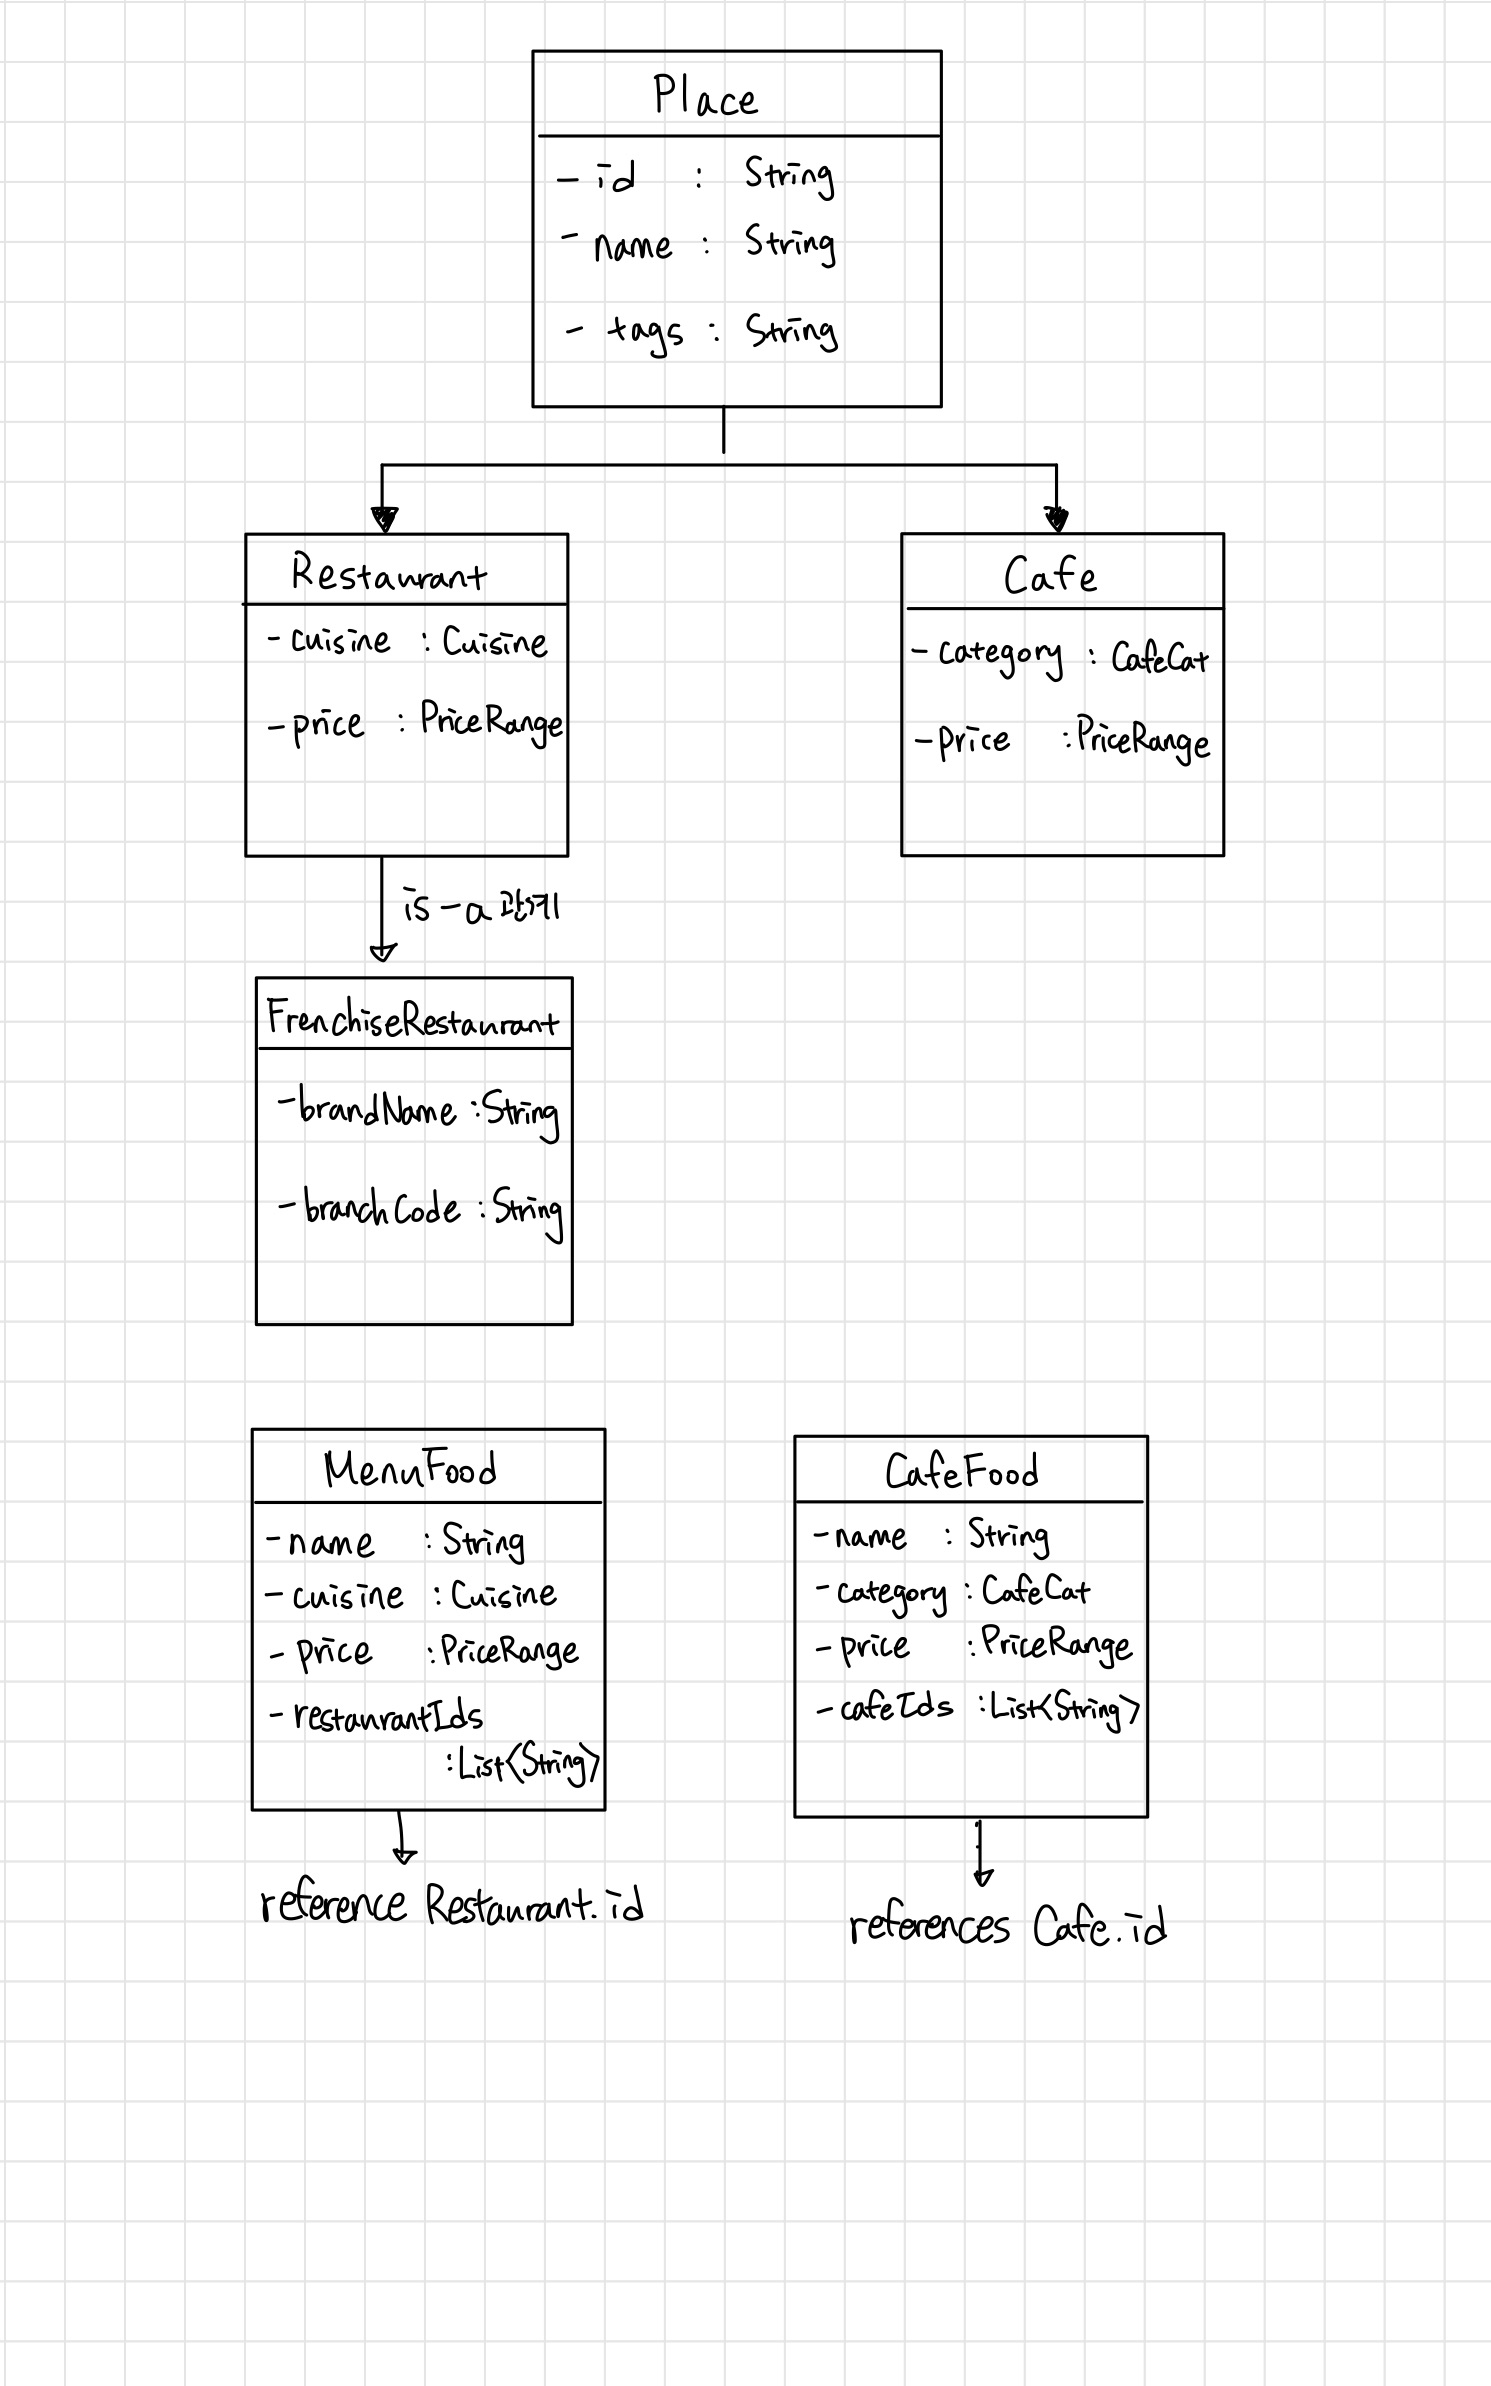 Place
- id : String
- name : String
- tags : String
Restaurant
- cuisine : Cuisine
- price : PriceRange
Cafe
- category : CafeCat
- price : PriceRange
is-a 관계
FrenchiseRestaurant
- brandName : String
- branchCode : String
MenuFood
- name : String
- cuisine : Cuisine
- price : PriceRange
- restaurantIds
: List<String>
reference Restaurant.id
CafeFood
- name : String
- category : CafeCat
- price : PriceRange
- cafeIds : List<String>
references Cafe.id